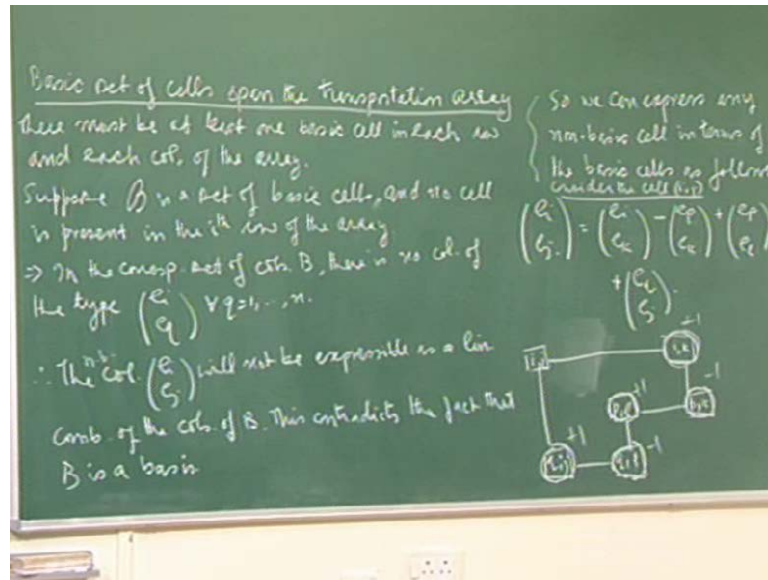 Basic set of cells span the transportation array
there must be at least one basic cell in each row
and each col. of the array.
Suppose B is a set of basic cells, and no cell
is present in the ith row of the array
⇒ In the corresp. set of cols. B, there is no col. of
the type (e_i e_q) ∀ q=1, .., n.
∴ The n.b. col. (e_i e_j) will not be expressible as a lin
comb. of the cols. of B. This contradicts the fact that
B is a basis
So we can express any
non-basic cell in terms of
the basic cells as follows
consider the cell (i,j)
(e_i e_j) = (e_i e_k) - (e_p e_k) + (e_p e_l)
+
+1
i,j
-1
+1
+1
-1